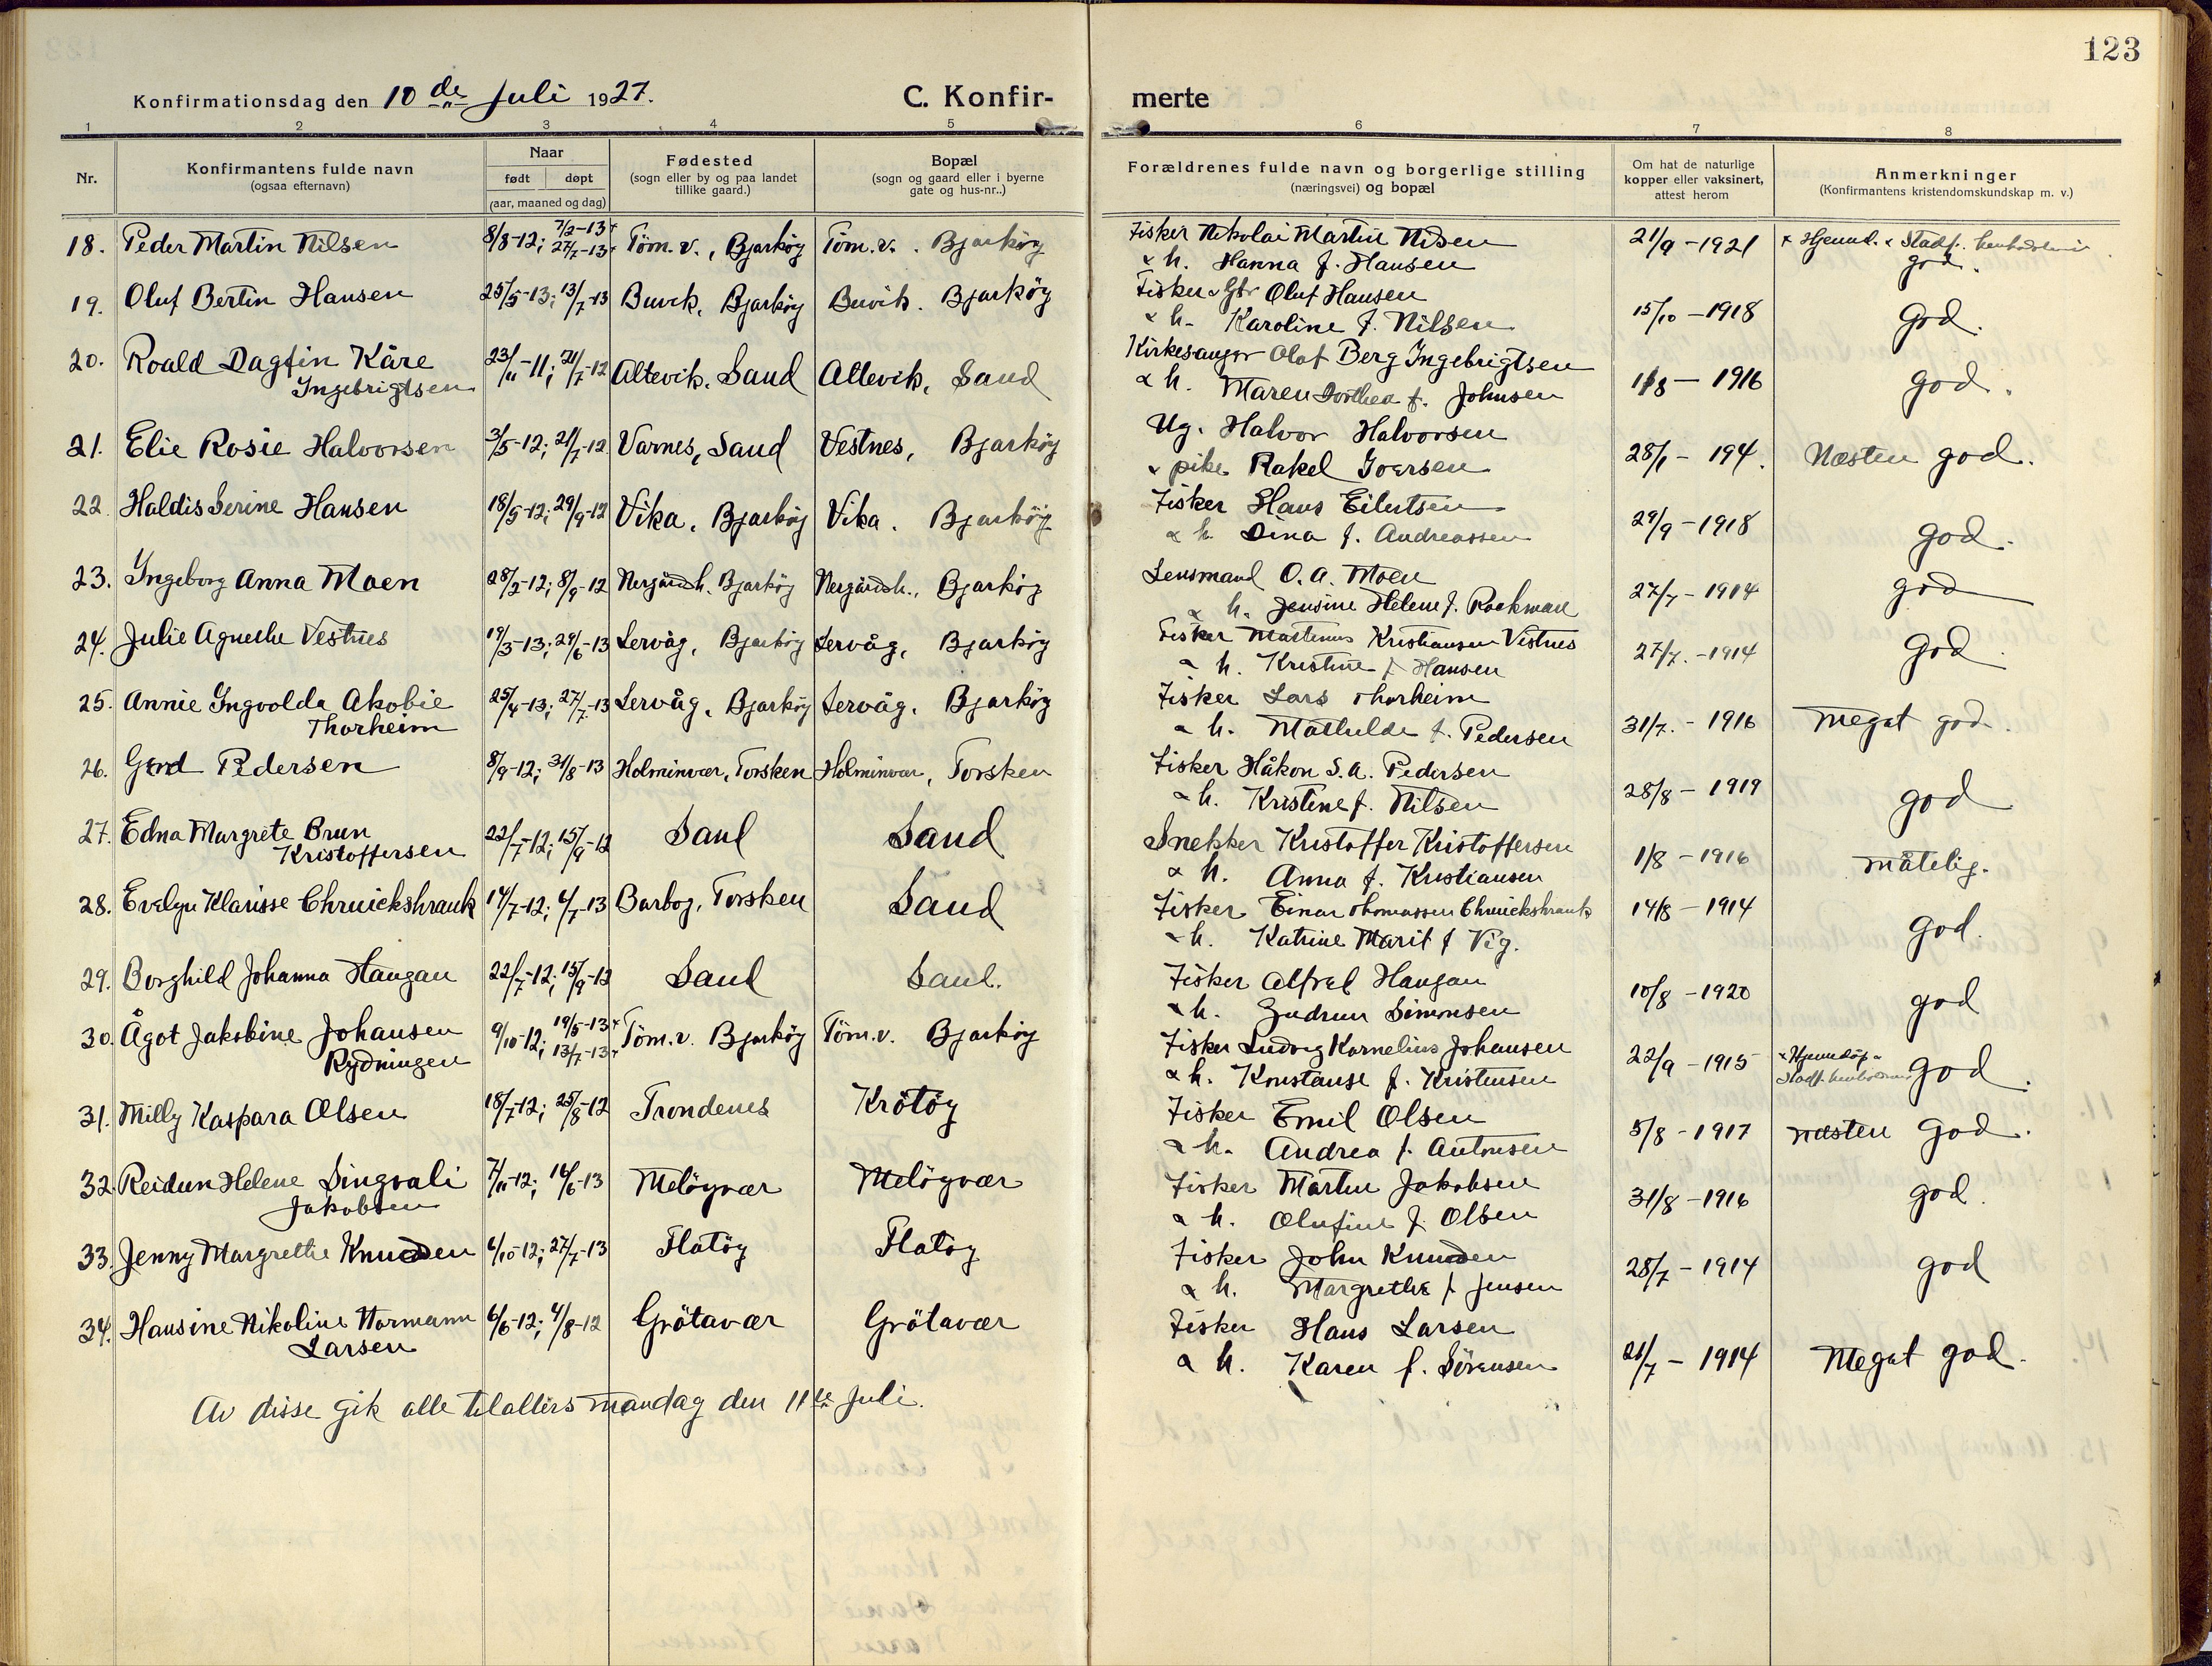 123
Konfirmationsdag den 10de Juli 1927.
C. Konfir-
merte
1 2 3 4 5 6 7 8
Nr.
Konfirmantens fulde navn
(ogsaa efternavn)
Naar
født døpt
(aar, maaned og dag)
Fødested
(sogn eller by og paa landet
tillike gaard.)
Bopæl
(sogn og gaard eller i byerne
gate og hus-nr..)
Forældrenes fulde navn og borgerlige stilling
(næringsvei) og bopæl
Om hat de naturlige
kopper eller vaksinert,
attest herom
Anmerkninger
(Konfirmantens kristendomskundskap m. v.)
18. Peder Martin Nilsen 8/8-12; 7/2-13+ 27/7-13+ Töm. v., Bjarköy Töm. v. Bjarköy Fisker Nikolai Martin Nilsen 21/9-1921 + Hjemd. & Stadf.
& h. Hanna f. Hansen god.
19. Oluf Bertin Hansen 25/5-13; 13/7-13 Buvik, Bjarköy Buvik. Bjarköy Fisker & Gbr Oluf Hansen
& h. Karoline f. Nilsen 15/10-1918 god.
20. Roald Dagfin Kåre 23/11-11; 21/7-12 Altevik, Sand Altevik, Sand Kirkesanger Olaf Berg Ingebrigtsen
Ingebrigtsen & h. Maren Dorthea f. Johnsen 1/8-1916 god.
21. Elie Rosie Halvorsen 3/5-12; 21/7-12 Varnes, Sand Vestnes, Bjarköy Ug. Halvor Halvorsen
& pike Rakel Iversen 28/1-194. Næsten god.
22. Haldis Serine Hansen 18/5-12; 29/9-12 Vika, Bjarköy Vika. Bjarköy Fisker Hans Eilertsen
& h. Dina f. Andreassen 29/9-1918 god.
23. Ingeborg Anna Moen 28/2-12; 8/9-12 Nergårdsh. Bjarköy Nergårdsh., Bjarköy Lensmand O. A. Moen
& h. Jensine Helene f. 27/7-1914 god
24. Julie Agnethe Vestnes 19/3-13; 29/6-13 Lervåg, Bjarköy Lervåg, Bjarköy Fisker Martinus Kristiansen Vestnes
& h. Kristine f Hansen 27/7.-1914 god.
25. Annie Ingvolda Akobie 25/4-13; 27/7-13 Lervåg, Bjarköy Lervåg, Bjarköy Fisker Lars Thorheim
Thorheim & h. Mathilde f. Pedersen 31/7.-1916 Meget god.
26. Gerd Pedersen 8/9-12; 31/8-13 Holminvær, Torsken Holminvær, Torsken Fisker Håkon S. A. Pedersen
& h. Kristine f. Nilsen 28/8-1919 god
27. Edna Margrete Brun 22/7-12; 15/9-12 Sand Sand Snekker Kristoffer Kristoffersen
Kristoffersen & h. Anna f. Kristiansen 1/8-1916 måtelig.
28. Evelyn Klarisse Chruickshrank 14/7-12; 6/7-13 Barbog, Torsken Sand Fisker Einar Thomassen Chruickshrank 14/8-1914
& h. Katrine Marit f Vig. god.
29. Borghild Johanna Haugan 22/7-12; 15/9-12 Sand Sand. Fisker Alfred Haugan
& h. Gudrun Simonsen 10/8-1920 god
30. Ågot Jakobine Johansen 9/10-12; 19/5-13+ 13/7-13+ Töm. v. Bjarköy Töm. v. Bjarköy Fisker Ludvig Kornelius Johansen
Rydningen & h. Konstanse f. Kristensen 22/9-1915 + Hjemdöp & Stadf. god.
31. Milly Kaspara Olsen 18/7-12; 25/8-12 Trondenes Krötöy Fisker Emil Olsen
& h. Andrea f. Antonsen 5/8-1917 næsten god.
32. Reidun Helene Singvali 7/11-12; 16/6-13 Melöyvær Melöyvær Fisker Martin Jakobsen
Jakobsen & h. Olufine f. Olsen 31/8-1916 god.
33. Jenny Margrethe Knudsen 6/10-12; 27/7-13 Flatöy Flatöy Fisker John Knudsen
& h. Margrethe f Jensen 28/7-1914 god
34. Hansine Nikoline Normann 6/6-12; 4/8-12 Grötavær Grötavær Fisker Hans Larsen
Larsen & h. Karen f. Sörensen 21/7-1914 Meget god.
Av disse gik alle til alters mandag den 11te Juli.